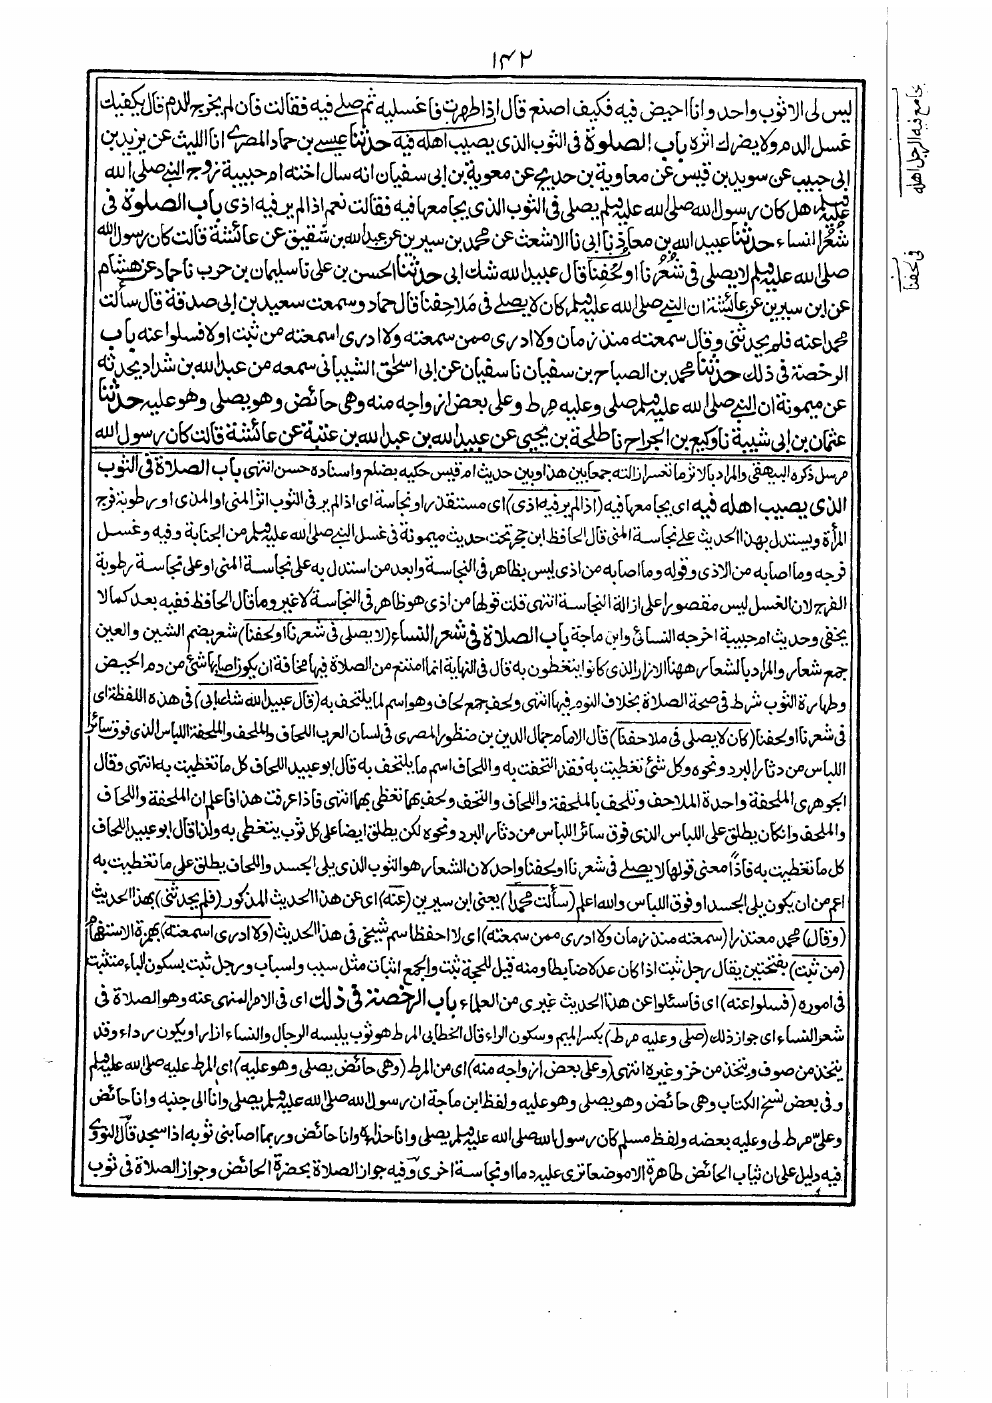 ١٤٢
ليس لى الا ثوب واحد وانا احيض فيه فكيف اصنع قال اذا طهرت فاغسليه ثم صلى فيه فقالت فان لم يخرج الدم قال يكفيك
غسل الدم ولا يضرك اثره باب الصلوة فى الثوب الذى يصيب اهله فيه حدثنا عيسى بن حماد المصرى انا الليث عن يزيد بن
ابى حبيب عن سويد بن قيس عن معاوية بن حديج عن معوية بن ابى سفيان انه سال اخته ام حبيبة زوج النبى صلى الله
عليه وسلم هل كان رسول الله صلى الله عليه وسلم يصلى فى الثوب الذى يجامعها فيه فقالت نعم اذا لم ير فيه اذى باب الصلوة فى
شُعُر النساء حدثنا عبيد الله بن معاذ نا ابى نا الاشعث عن محمد بن سيرين عن عبد الله بن شقيق عن عائشة قالت كان رسول الله
صلى الله عليه وسلم لا يصلى فى شُعُرنا او لُحُفنا قال عبيد الله شك ابى حدثنا الحسن بن على نا سليمان بن حرب نا حماد عن هشام
عن ابن سيرين عن عائشة ان النبى صلى الله عليه وسلم كان لا يصلى فى ملاحفنا قال حماد وسمعت سعيد بن ابى صدقة قال سألت
محمدا عنه فلم يحدثنى وقال سمعته منذ زمان ولا ادرى ممن سمعته ولا ادرى اسمعته من ثبت او لا فسلوا عنه باب
الرخصة فى ذلك حدثنا محمد بن الصباح بن سفيان نا سفيان عن ابى اسحق الشيبانى سمعه من عبد الله بن شداد يحدثه
عن ميمونة ان النبى صلى الله عليه وسلم صلى وعليه مرط وعلى بعض ازواجه منه وهى حائض وهو يصلى وهو عليه حدثنا
عثمان بن ابى شيبة نا وكيع بن الجراح نا طلحة بن يحيى عن عبيد الله بن عبد الله بن عتبة عن عائشة قالت كان رسول الله
مرسل ذكره البيهقى والمراد بالاثر ما تعسر ازالته جمعا بين هذا وبين حديث ام قيس حكيه بضلع واسناده حسن انتهى باب الصلاة فى الثوب
الذى يصيب اهله فيه اى يجامعها فيه (اذا لم ير فيه اذى) اى مستقذرا او نجاسة اى اذا لم ير فى الثوب اثر المنى او المذى او رطوبة فرج
المرأة ويستدل بهذا الحديث على نجاسة المنى قال الحافظ ابن حجر تحت حديث ميمونة فى غسل النبى صلى الله عليه وسلم من الجنابة وفيه وغسل
فرجه وما اصابه من الاذى وقوله وما اصابه من اذى ليس بظاهر فى النجاسة وابعد من استدل به على نجاسة المنى او على نجاسة رطوبة
الفرج لان الغسل ليس مقصورا على ازالة النجاسة انتهى قلت قولها من اذى هو ظاهر فى النجاسة لا غير وما قال الحافظ ففيه بعد كما لا
يخفى وحديث ام حبيبة اخرجه النسائى وابن ماجة باب الصلاة فى شعر النساء (لا يصلى فى شعرنا او لحفنا) شعر بضم الشين والعين
جمع شعار والمراد بالشعار ههنا الازار الذى كانوا يتغطون به قال فى النهاية انما امتنع من الصلاة فيها مخافة ان يكون اصابها شئ من دم الحيض
وطهارة الثوب شرط فى صحة الصلاة بخلاف النوم فيها انتهى ولحف جمع لحاف وهو اسم لما يلتحف به (قال عبيد الله شك ابى) فى هذه اللفظة اى
فى شعرنا او لحفنا (كان لا يصلى فى ملاحفنا) قال الامام جمال الدين بن منظور المصرى فى لسان العرب اللحاف والملحف والملحفة اللباس الذى فوق سائر
اللباس من دثار البرد ونحوه وكل شئ تغطيت به فقد التحفت به واللحاف اسم ما يلتحف به قال ابو عبيد اللحاف كل ما تغطيت به انتهى وقال
الجوهرى الملحفة واحدة الملاحف وتلحف بالملحفة واللحاف والتحف ولحف بها تغطى بها انتهى فاذا عرفت هذا فاعلم ان الملحفة واللحاف
والملحف وان كان يطلق على اللباس الذى فوق سائر اللباس من دثار البرد ونحوه لكن يطلق ايضا على كل ثوب يتغطى به ولذا قال ابو عبيد اللحاف
كل ما تغطيت به فاذًا معنى قولها لا يصلى فى شعرنا او لحفنا واحد لان الشعار هو الثوب الذى يلى الجسد واللحاف يطلق على ما تغطيت به
اعم من ان يكون يلى الجسد او فوق اللباس والله اعلم (سألت محمدا) يعنى ابن سيرين (عنه) اى عن هذا الحديث المذكور (فلم يحدثنى) بهذا الحديث
(وقال) محمد معتذرا (سمعته منذ زمان ولا ادرى ممن سمعته) اى لا احفظ اسم شيخى فى هذا الحديث (ولا ادرى اسمعته) بهمزة الاستفهام
(من ثبت) بفتحتين يقال رجل ثبت اذا كان عدلا ضابطا ومنه قيل للحجة ثبت والجمع اثبات مثل سبب واسباب ورجل ثبت بسكون الباء متثبت
فى اموره (فسلوا عنه) اى فاسئلوا عن هذا الحديث غيرى من العلماء باب الرخصة فى ذلك اى فى الامر المنهى عنه وهو الصلاة فى
شعر النساء اى جواز ذلك (صلى وعليه مرط) بكسر الميم وسكون الراء قال الخطابى المرط هو ثوب يلبسه الرجال والنساء ازارا ويكون رداء وقد
يتخذ من صوف ويتخذ من خز وغيره انتهى (وعلى بعض ازواجه منه) اى من المرط (وهى حائض يصلى وهو عليه) اى المرط عليه صلى الله عليه وسلم
وفى بعض نسخ الكتاب وهى حائض وهو يصلى وهو عليه ولفظ ابن ماجة ان رسول الله صلى الله عليه وسلم يصلى وانا الى جنبه وانا حائض
وعلىّ مرط لى وعليه بعضه ولفظ مسلم كان رسول الله صلى الله عليه وسلم يصلى وانا حذاءه وانا حائض وربما اصابنى ثوبه اذا سجد قال النووى
فيه دليل على ان ثياب الحائض طاهرة الا موضعا ترى عليه دما او نجاسة اخرى وفيه جواز الصلاة بحضرة الحائض وجواز الصلاة فى ثوب
يجامع فيه الرجل اهله
فى لحفنا